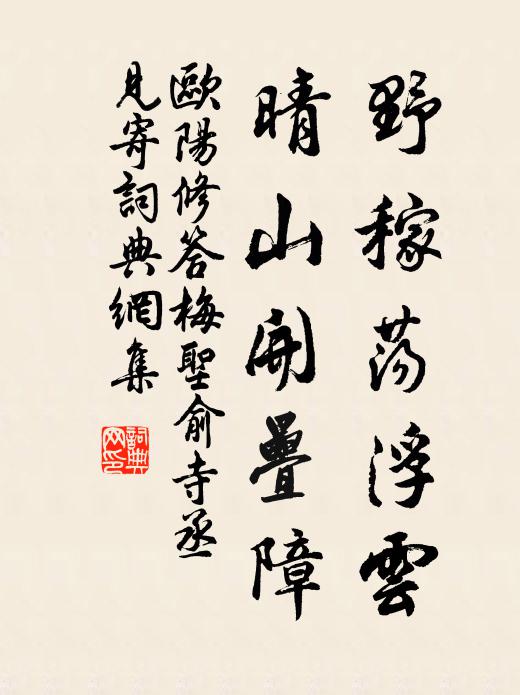 野稼蕩浮雲
晴山開疊障
歐陽修答梅聖俞寺丞
見寄詞典網集
詞典
网印